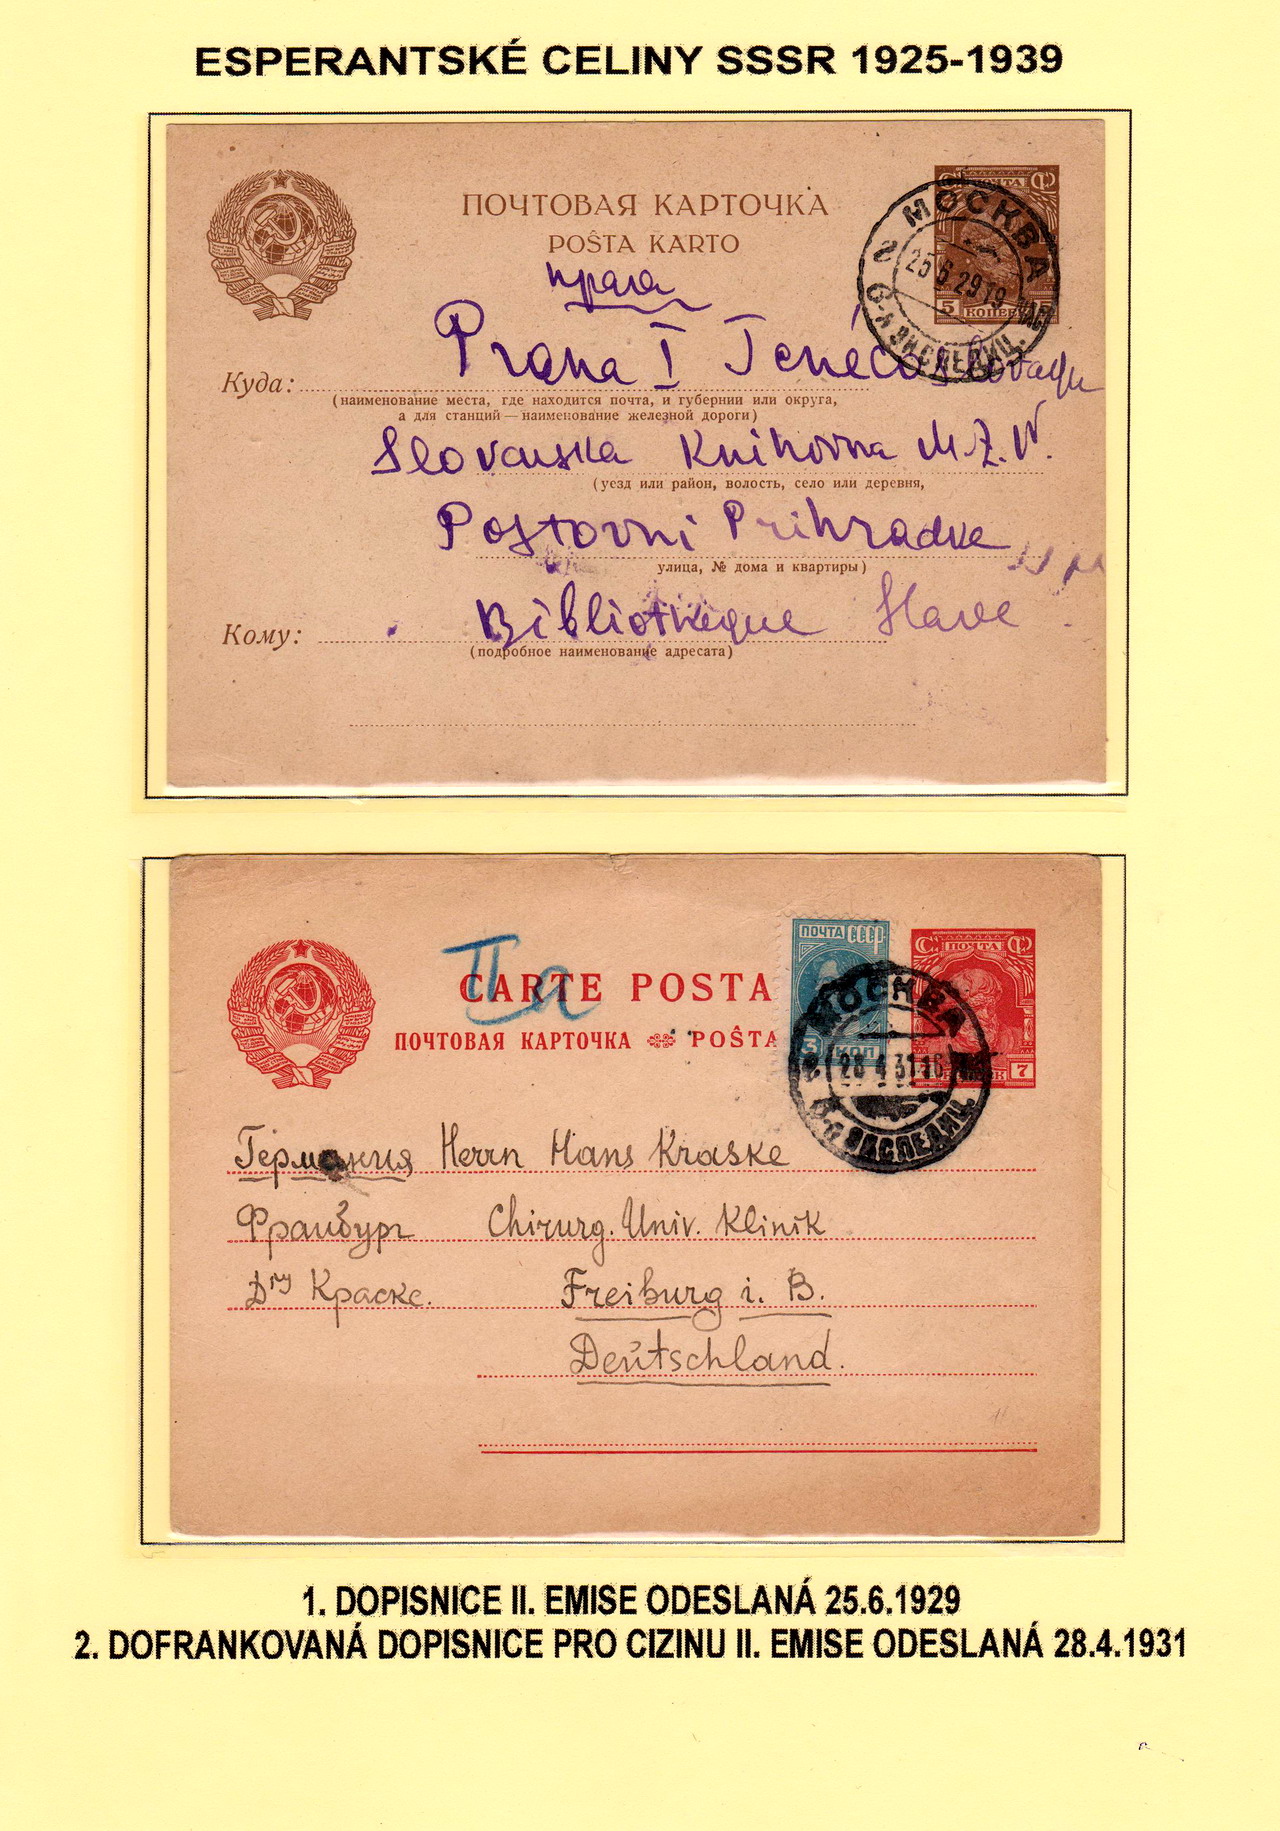 ESPERANTSKÉ CELINY SSSR 1925-1939
ПОЧТОВАЯ КАРТОЧКА
POŜTA KARTO
ПОЧТА
5 КОПЕЕК 5
МОСКВА
25 6 29 19
6-я ЭКСПЕДИЦ.
прага
Куда: Praha I
(наименование места, где находится почта, и губернии или округа,
а для станций — наименование железной дороги)
Slovanska Knihovna M.Z.V.
(уезд или район, волость, село или деревня,
Postovni Prihradke
улица, № дома и квартиры)
Кому: Bibliotheque Slave
(подробное наименование адресата)
II a
CARTE POSTA
ПОЧТОВАЯ КАРТОЧКА POŜTA
ПОЧТА СССР
3 КОП
ПОЧТА
7
МОСКВА
28 4 31 16
ЭКСПЕДИЦ.
Германия Herrn Hans Kraske
Фрайбург Chirurg. Univ. Klinik
Дру Краске. Freiburg i. B.
Deutschland.
1. DOPISNICE II. EMISE ODESLANÁ 25.6.1929
2. DOFRANKOVANÁ DOPISNICE PRO CIZINU II. EMISE ODESLANÁ 28.4.1931